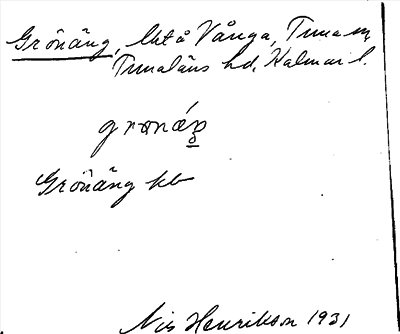 Grönäng, lht å Vånga, Tuna sn,
Tunaläns hd, Kalmar l.
grønáŋ
Grönäng kb
Nis Henrikson 1931